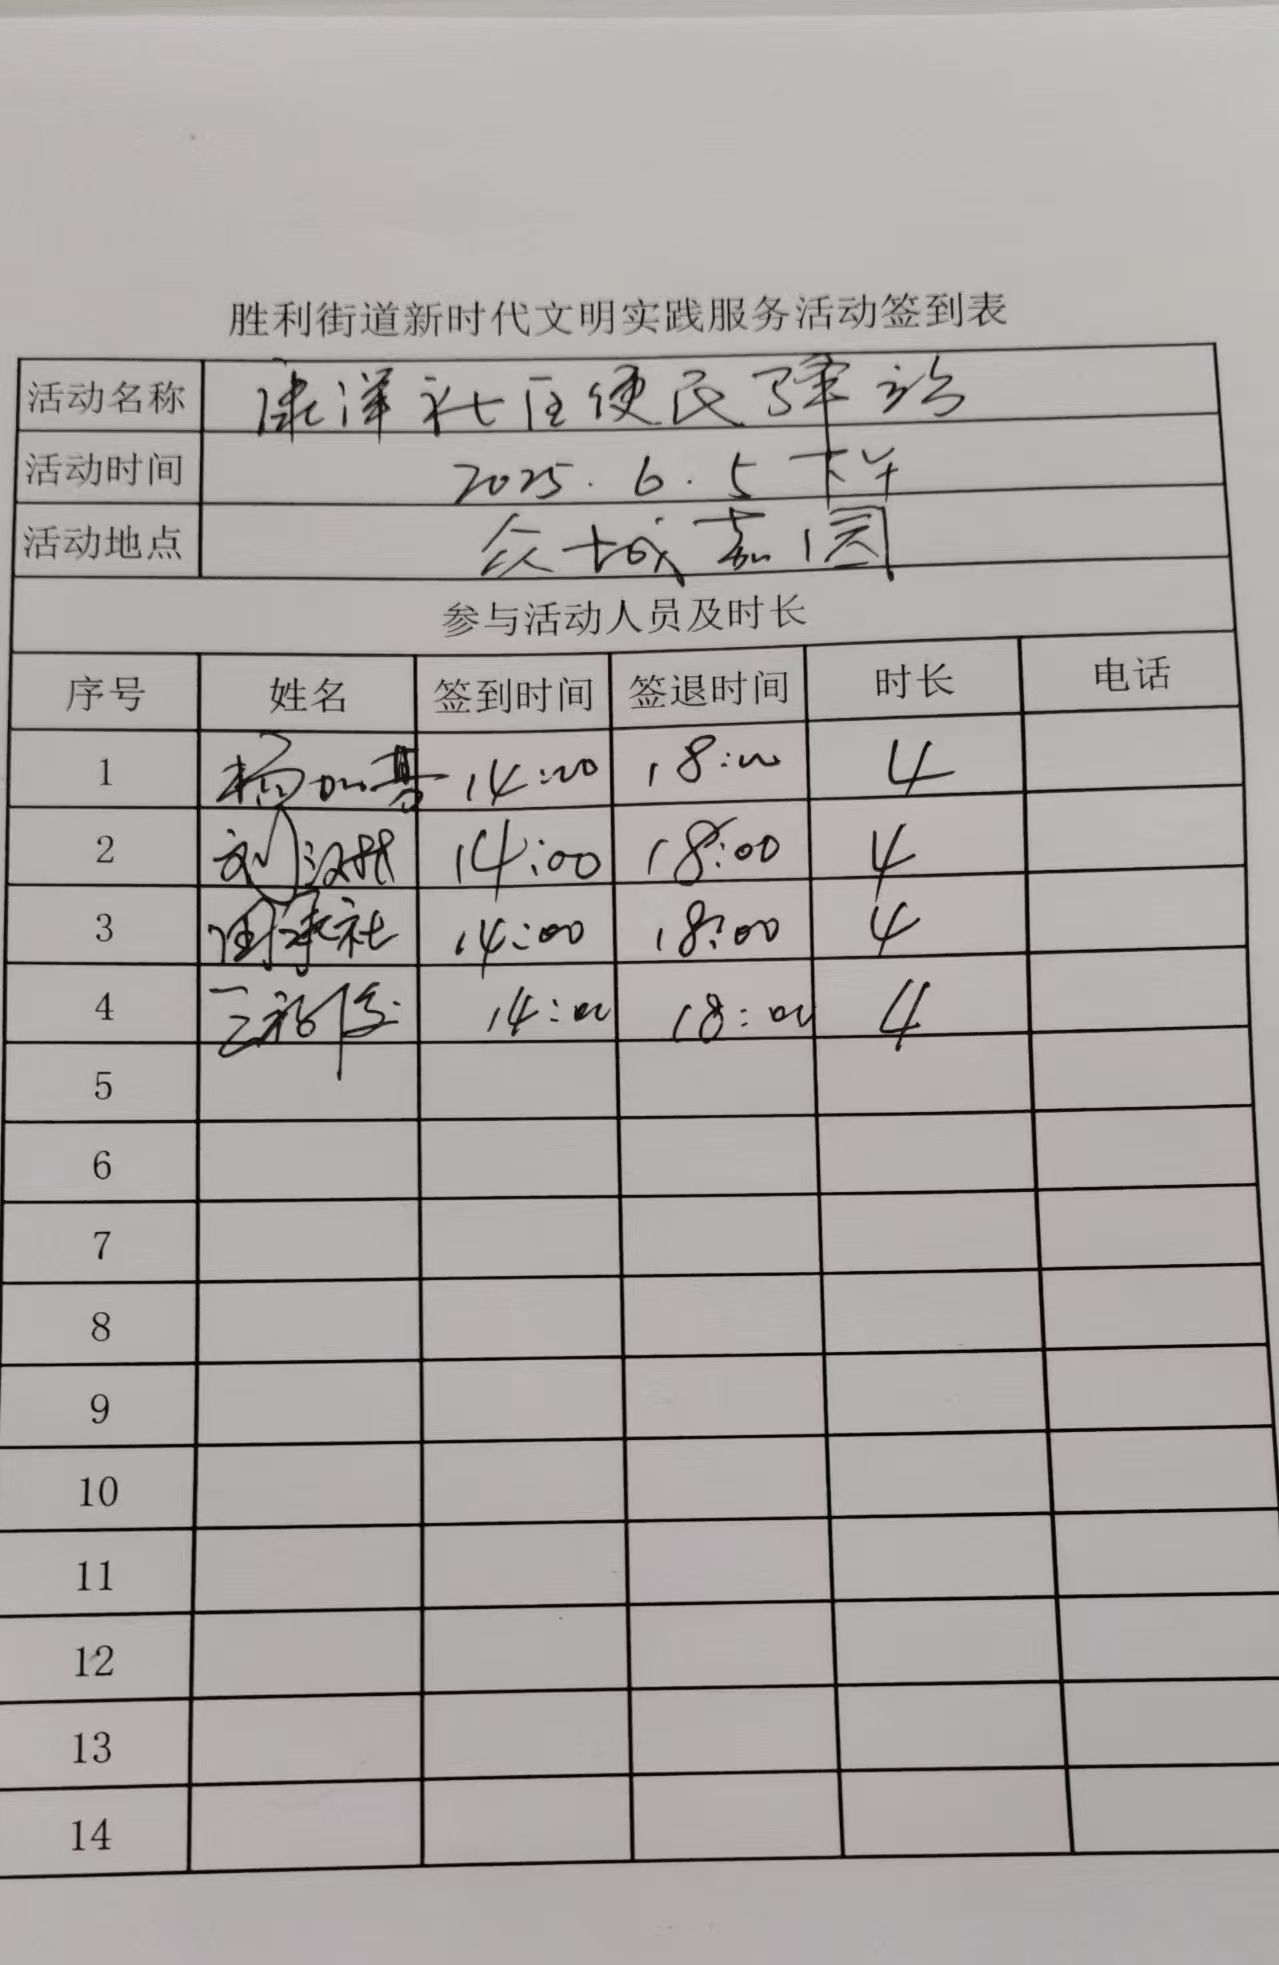 胜利街道新时代文明实践服务活动签到表
活动名称 康洋社区便民驿站
活动时间 2025.6.5 下午
活动地点 众城嘉园
参与活动人员及时长
序号 姓名 签到时间 签退时间 时长 电话
1 14:00 18:00 4
2 刘汉 14:00 18:00 4
3 承社 14:00 18:00 4
4 14:00 18:00 4
5
6
7
8
9
10
11
12
13
14